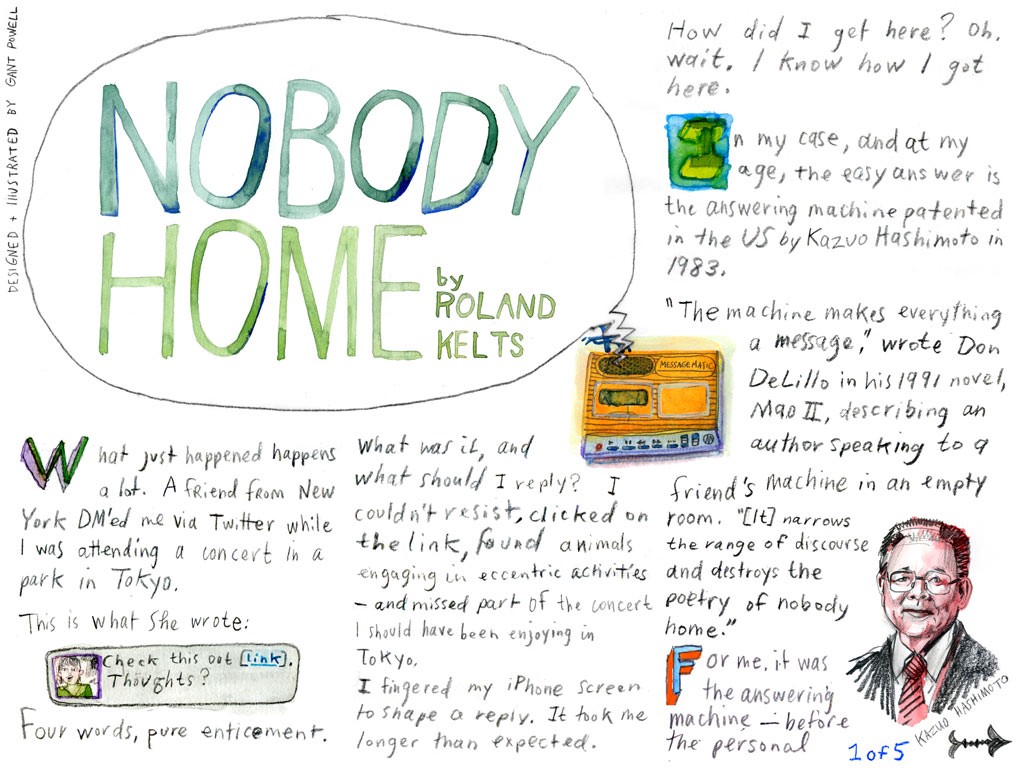 DESIGNED + ILLUSTRATED BY GANT POWELL
NOBODY
HOME
by
ROLAND
KELTS
What just happened happens
a lot. A friend from New
York DM'ed me via Twitter while
I was attending a concert in a
park in Tokyo.
This is what she wrote:
Check this out [link].
Thoughts?
Four words, pure enticement.
What was it, and
what should I reply? I
couldn't resist, clicked on
the link, found animals
engaging in eccentric activities
– and missed part of the concert
I should have been enjoying in
Tokyo.
I fingered my iPhone screen
to shape a reply. It took me
longer than expected.
How did I get here? Oh,
wait. I know how I got
here.
In my case, and at my
age, the easy answer is
the answering machine patented
in the US by Kazuo Hashimoto in
1983.
"The machine makes everything
a message," wrote Don
DeLillo in his 1991 novel,
Mao II, describing an
author speaking to a
friend's machine in an empty
room. "[It] narrows
the range of discourse
and destroys the
poetry of nobody
home."
For me, it was
the answering
machine – before
the personal
MESSAGE MATIC
KAZUO HASHIMOTO
1 of 5